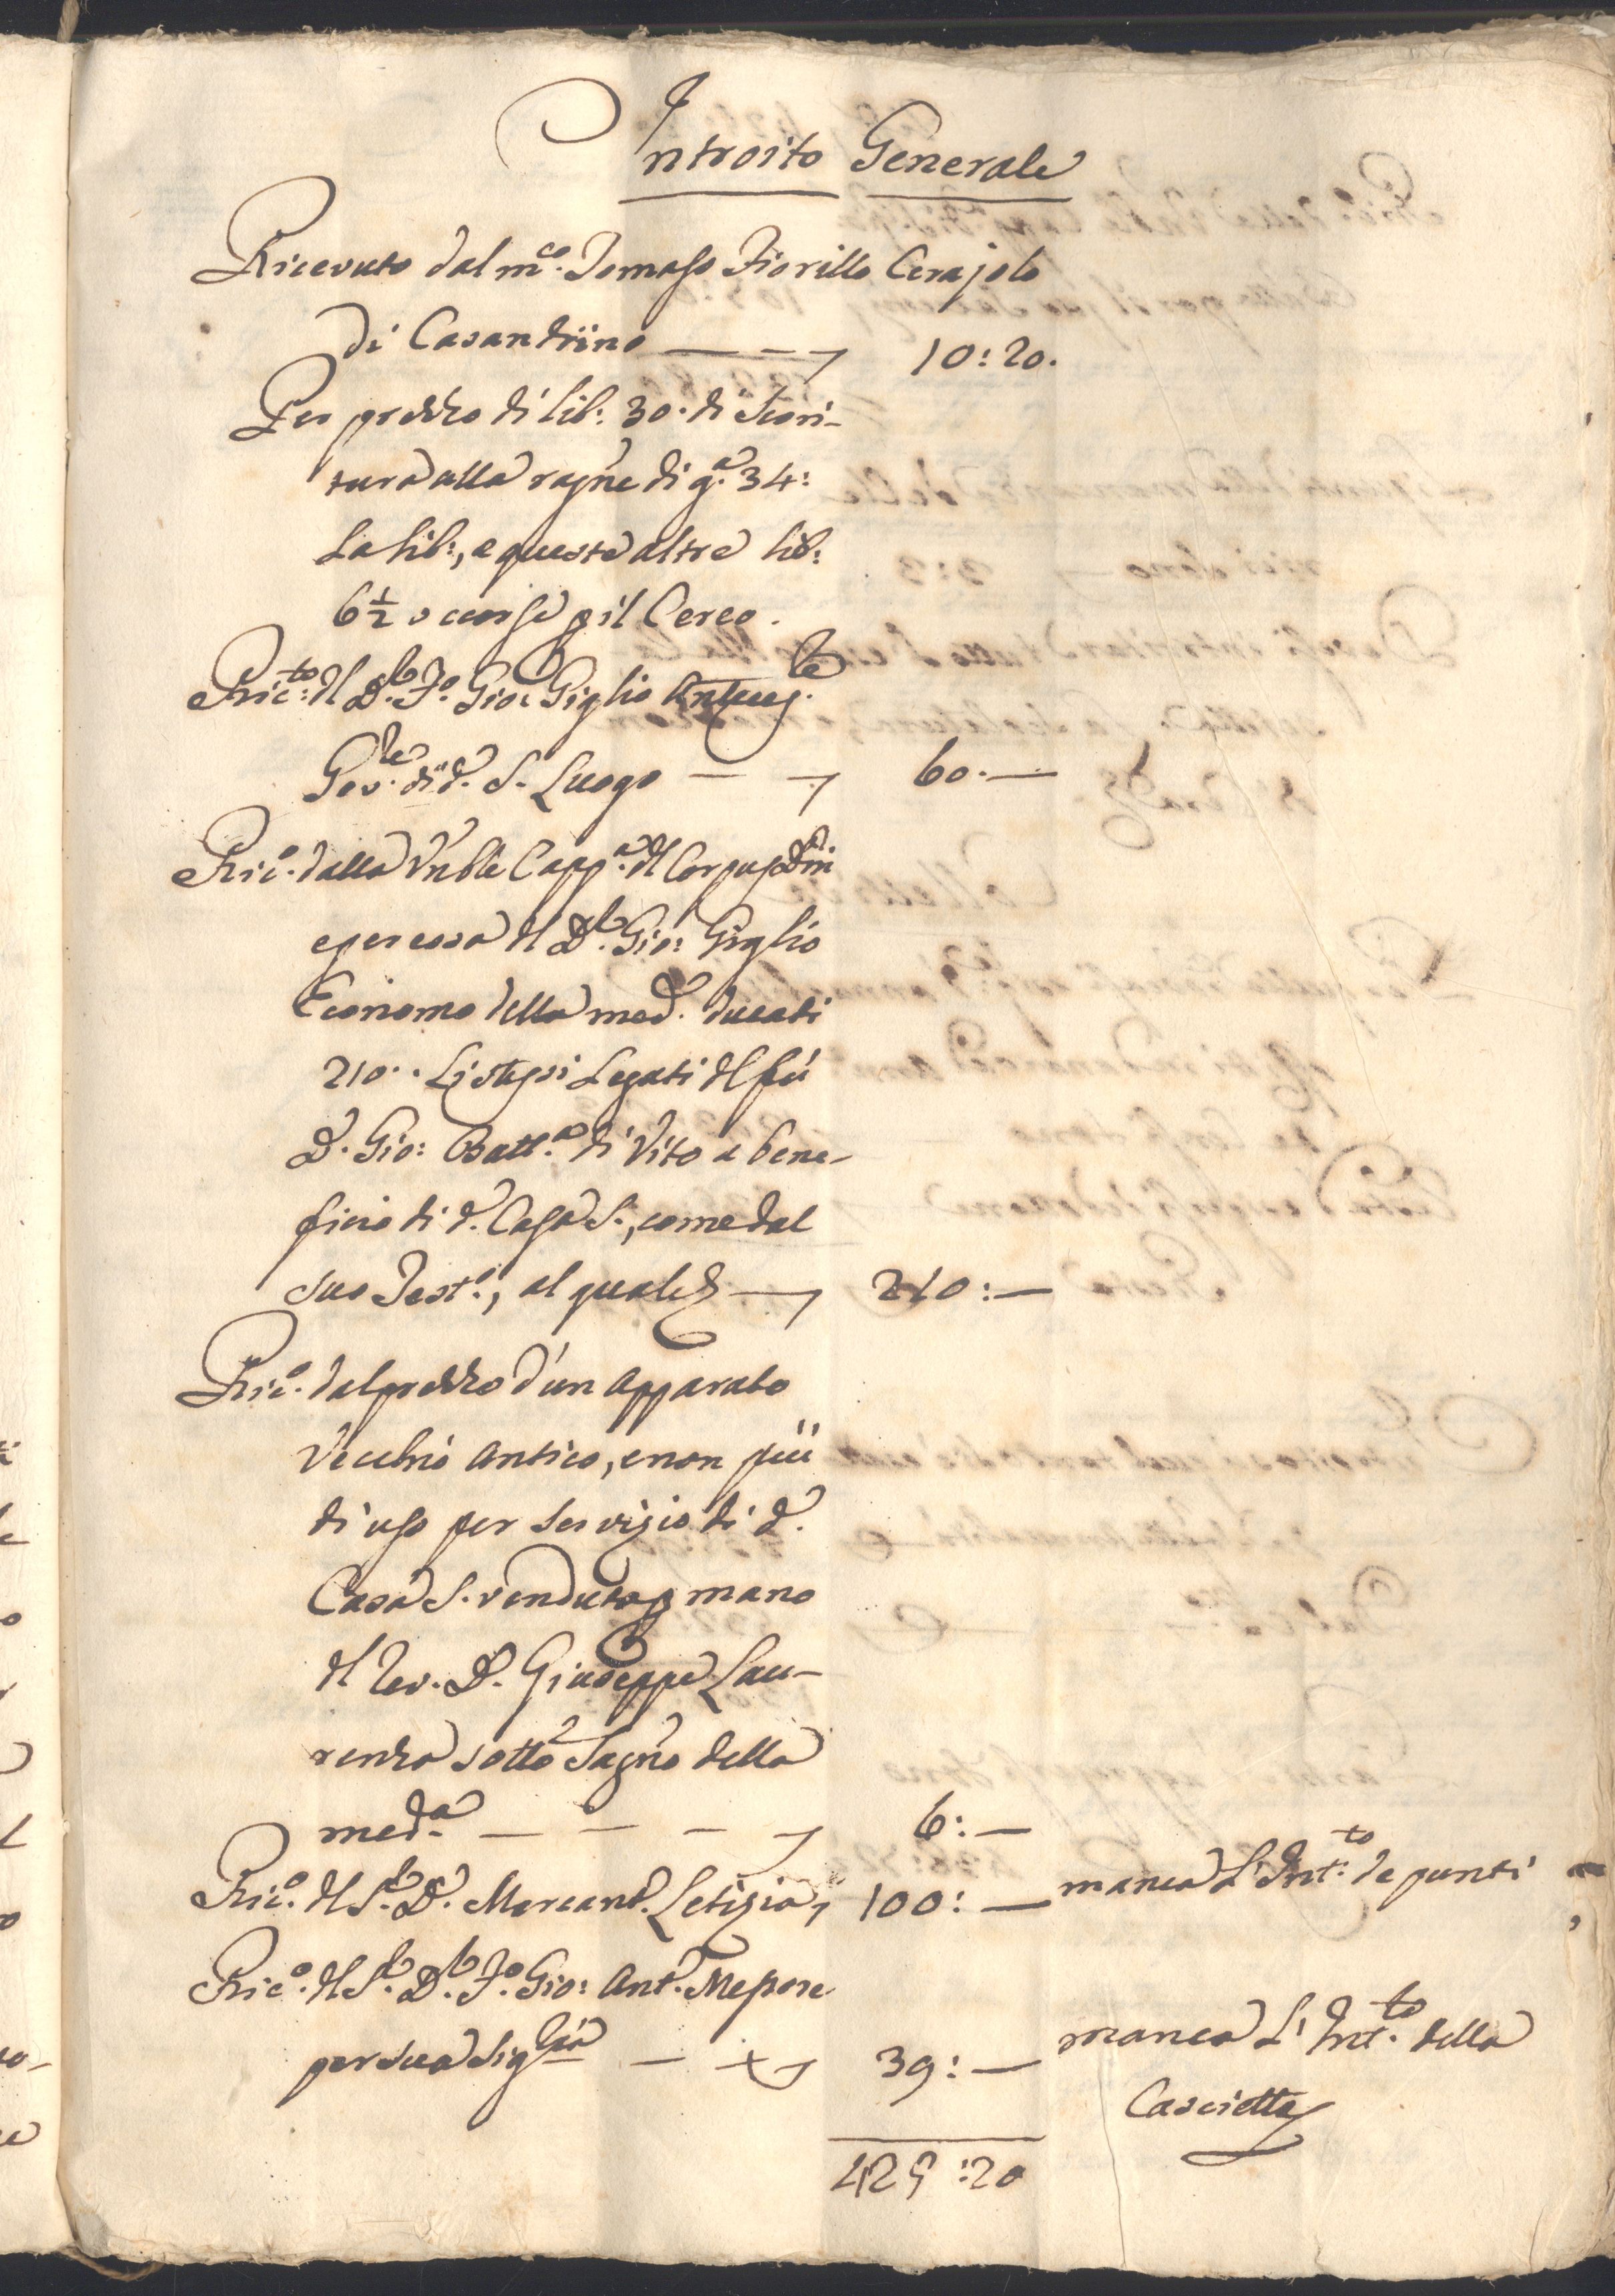 Introito Generale
Ricevuto dal m.co Tomaso Fiorillo Cerajolo
di Casandrino 10:20.
Per prezzo di lib: 30. di Scori-
tura alla rag.ne di g.a 34:
la lib:, e queste altre lib:
6 1/2 occorse p il Cereo.
Ric.to dl D.r F.o Gio: Giglio
Gov.le di d.o S. Luogo 60.—
Ric.o dalla Vnble Capp.a dl Corpus Dni
e per essa dl D.r Gio: Giglio
Economo della med. ducati
210.. Listessi Legati dl fù
D. Gio: Batt.a di Vito a bene-
ficio di d. Casa S., come dal
suo Test.o, al quale 210:—
Ric.o dal prezzo d'un Apparato
Vecchio antico, e non più
di uso per servizio di d.
Casa S. venduto p mano
dl Rev. D. Giuseppe Lau-
renza sotto Sagr.no della
med.a 6:—
Ric.o dl S.r D. Mercant. Letizia, 100:— manca l'Int.to de punti
Ric.o dl S.r D.r F.o Gio: Ant. Mepore
per sua Sig.ria 39:— manca l'Int.to della
Cascietta
425:20